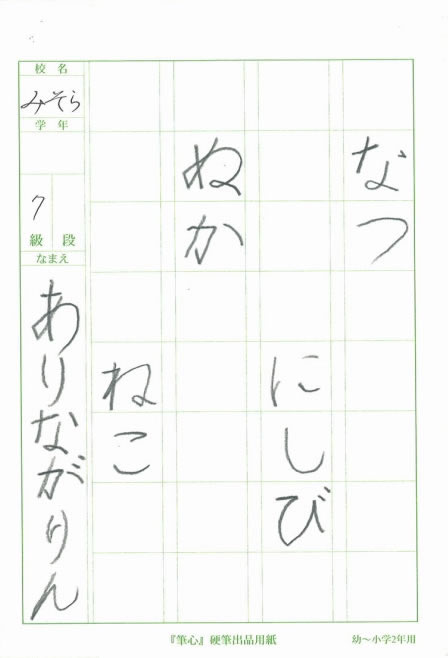 なつ
にしび
ぬか
ねこ
校名
みそら
学年
7
級 段
なまえ
ありながりん
『筆心』硬筆出品用紙
幼〜小学2年用